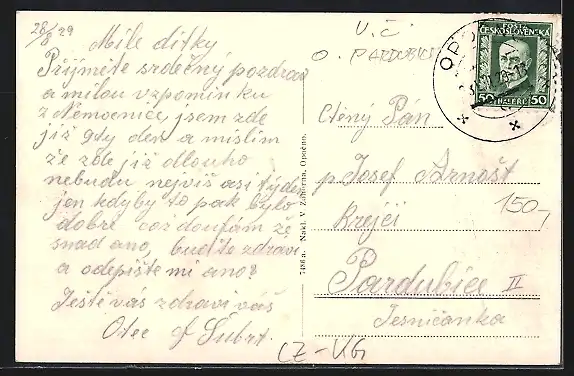 28/8 29
Milé dítky
Přijmite srdečný pozdrav
a milou vzpomínku
z Nemocnice, jsem zde
již 9tý den a mislím
že zde již dlouho
nebudu nejvíš asi týden
jen kdyby to pak bylo
dobré což doufám že
snad ano, buďte zdraví
a odepište mi ano?
Ještě vás zdraví váš
Otec J Šubrt.
7486 a. Nakl. V. Zahorna, Opočno.
V. Č.
O. PARDUBICE
POSTA
ČESKOSLOVENSKÁ
50 HALÉŘŮ 50
OPO
Ctěný Pán
p Josef Arnošt
Krejčí
150,-
Pardubice II
Jesničanka
CZ-KG